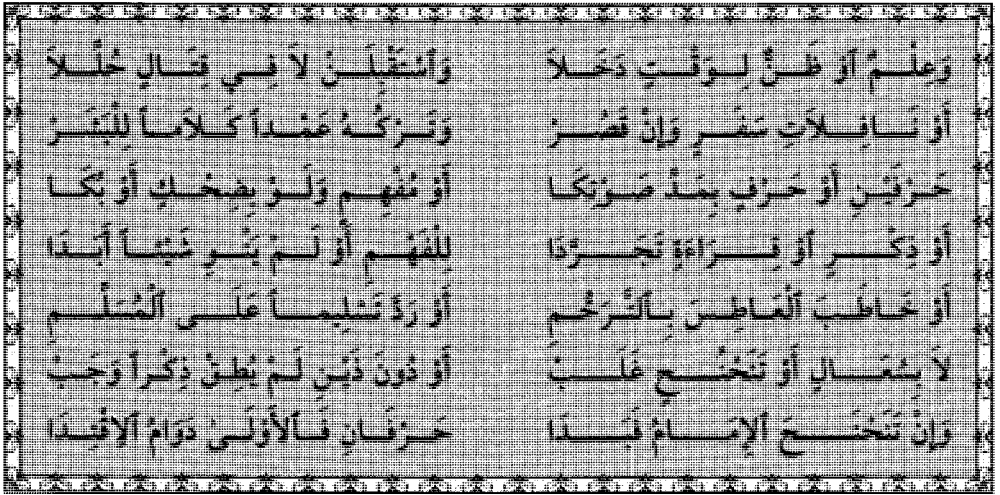 وَعِلْمٌ آوْ ظَنٌّ لِوَقْتٍ دَخَلاَ وَٱسْتَقْبِلَنْ لاَ فِي قِتَالٍ حُلِّلاَ
أَوْ نَافِلاَتِ سَفَرٍ وَإِنْ قَصُرْ وَتَرْكُهُ عَمْداً كَلاَماً لِلْبَشَرْ
حَرْفَيْنِ أَوْ حَرْفٍ بِمَدِّ صَوْتِكَا أَوْ مُفْهِمٍ وَلَوْ بِضِحْكٍ أَوْ بُكَا
أَوْ ذِكْرٍ آوْ قِرَاءَةٍ تَجَرَّدَا لِلْفَهْمِ أَوْ لَمْ يَنْوِ شَيْئاً أَبَدَا
أَوْ خَاطَبَ ٱلْعَاطِسَ بِٱلتَّرَحُّمِ أَوْ رَدَّ تَسْلِيماً عَلَى ٱلْمُسَلِّمِ
لاَ بِسُعَالٍ أَوْ تَنَحْنُحٍ غَلَبْ أَوْ دُونَ ذَيْنِ لَمْ يُطِقْ ذِكْراً وَجَبْ
وَإِنْ تَنَحْنَحَ ٱلإِمَامُ فَبَدَا حَرْفَانِ فَٱلأَوْلَىٰ دَوَامُ ٱلاِقْتِدَا